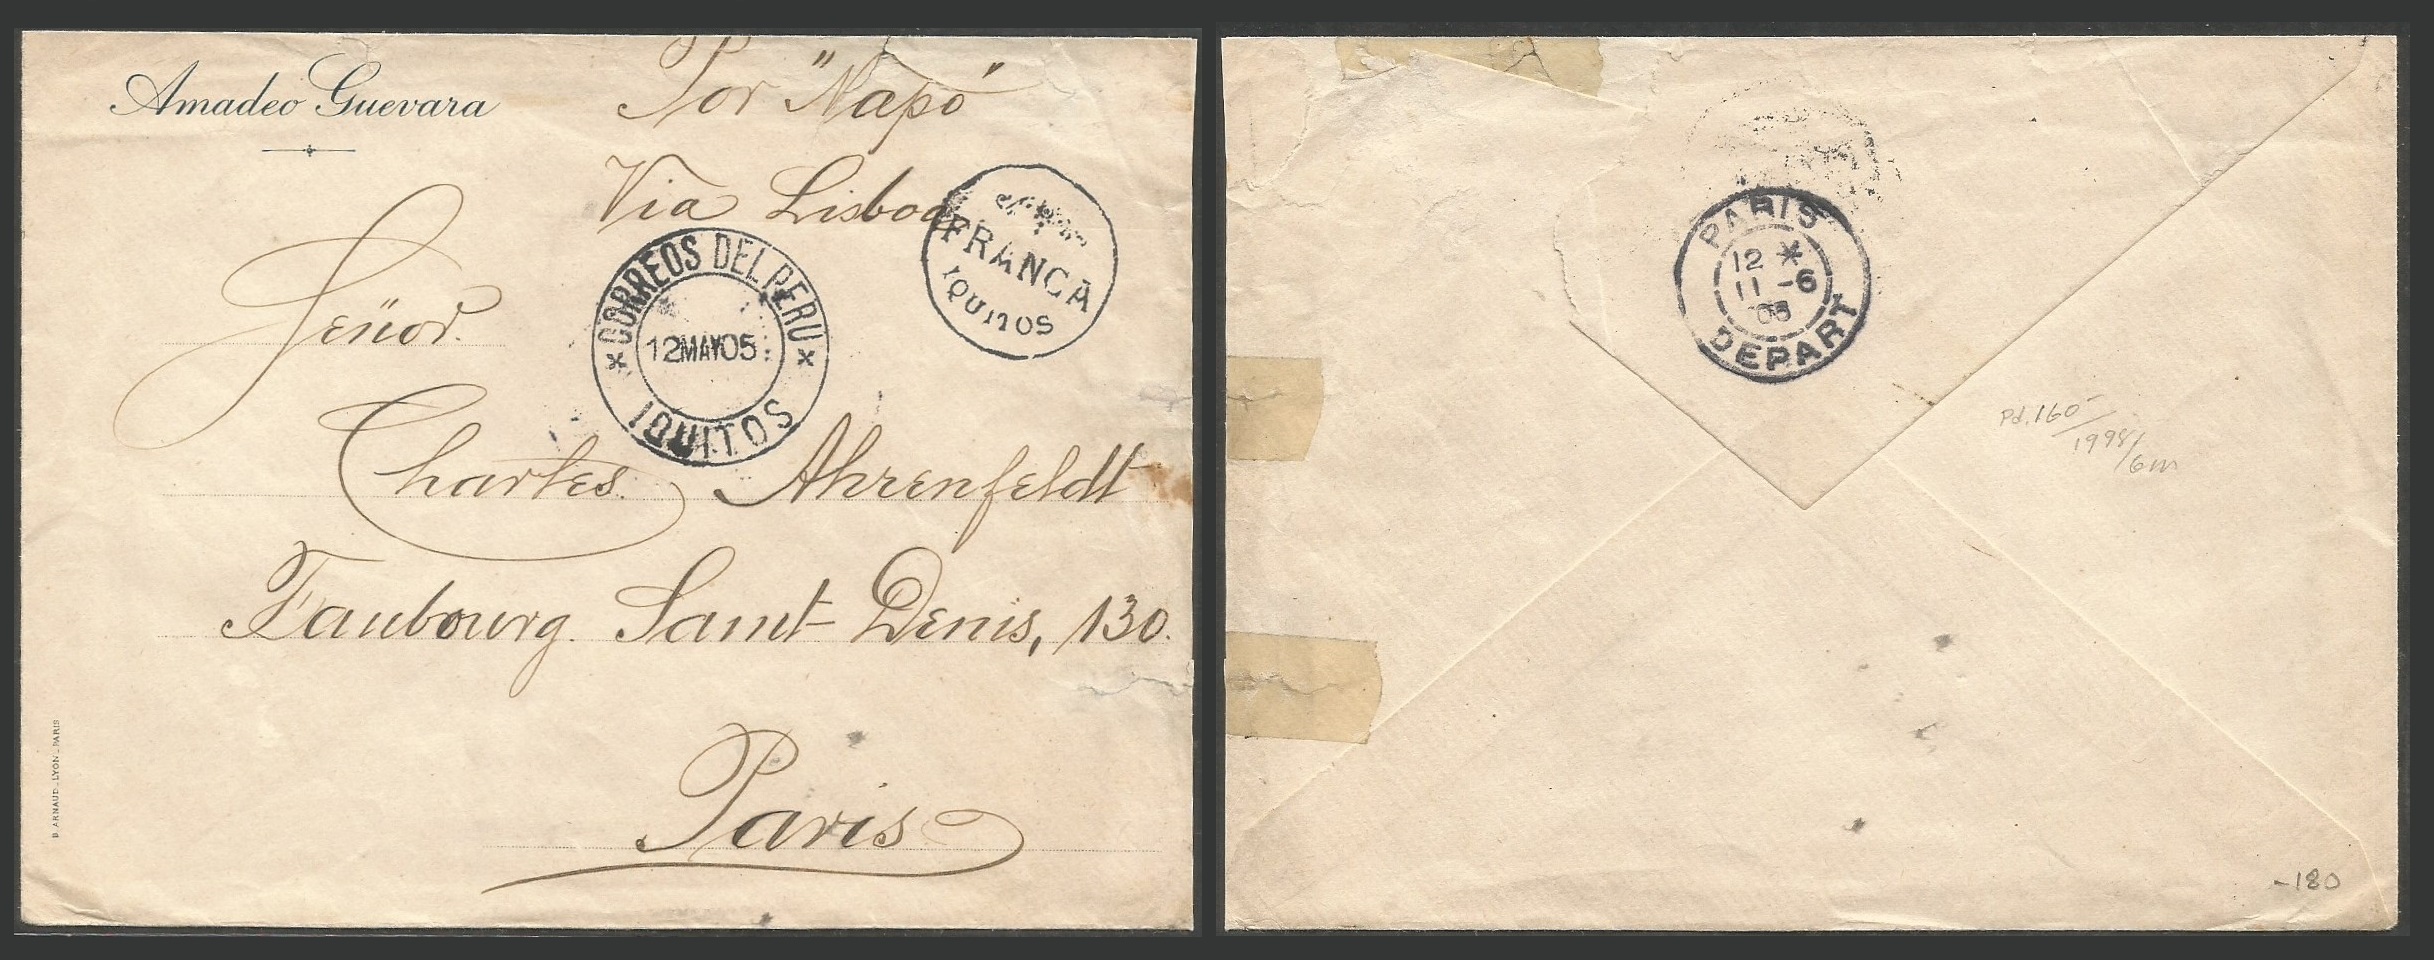 Amadeo Guevara
Por "Napo"
Via Lisboa
FRANCA
IQUITOS
CORREOS DEL PERU
12MAY05
IQUITOS
Señor.
Charles Ahrenfeldt
Faubourg Saint Denis, 130.
Paris
B. ARNAUD_LYON_PARIS
PARIS
12 *
11 -6
DEPART
Pd. 160-
1998/
6m
-180